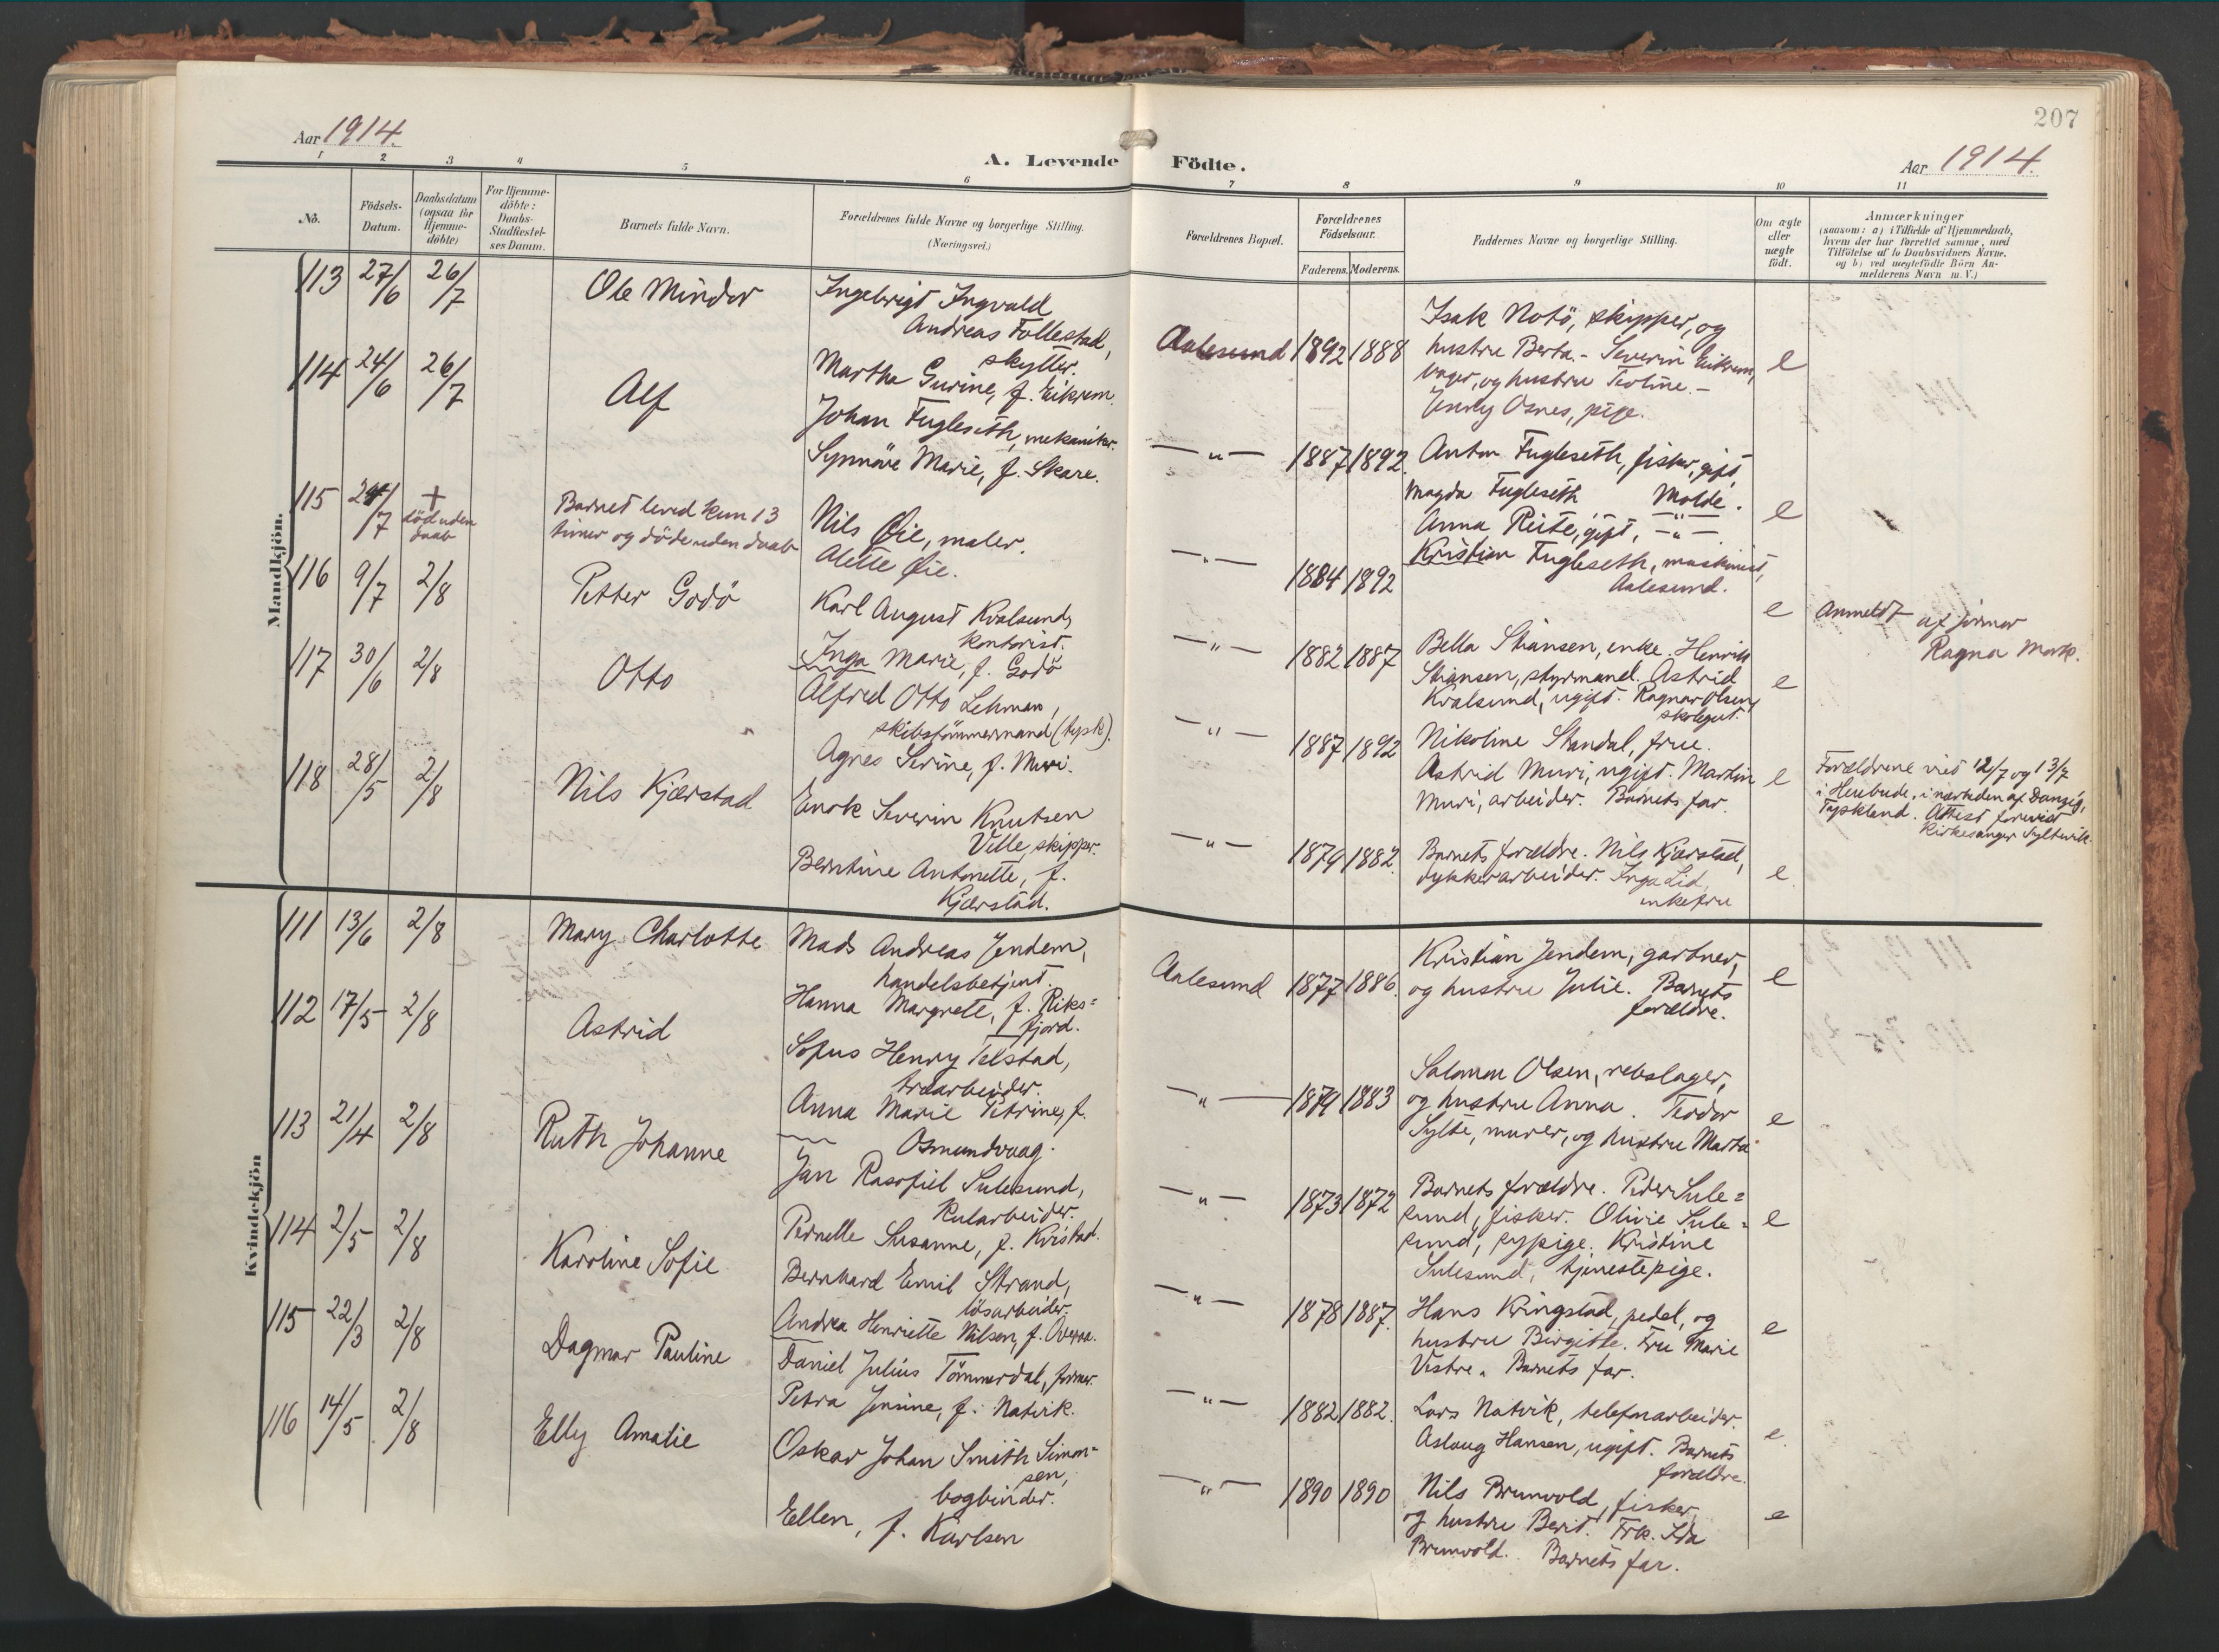 207
Aar 1914.
A. Levende Födte.
Aar 1914.
1 2 3 4 5 6 7 8 9 10 11
No.
Födsels-
Datum.
Daabsdatum
(ogsaa for
Hjemme-
döbte)
For Hjemme-
döbte:
Daabs-
Stadfestel-
ses Datum.
Barnets fulde Navn.
Forældrenes fulde Navne og borgerlige Stilling.
(Næringsvei.)
Forældrenes Bopæl.
Forældrenes
Födselsaar.
Faderens. Moderens.
Faddernes Navne og borgerlige Stilling.
Om ægte
eller
uægte
födt.
Anmærkninger
(saasom: a) i Tilfælde af Hjemmedaab,
hvem der har forrettet samme, med
Tilföielse af to Daabsvidners Navne.
og b) ved uægtefödte Börn An-
melderens Navn m. V.)
Mandkjön.
113 27/6 26/7
Ole Mindor
Ingebrigt Ingvald
Andreas Follestad,
skytter.
Martha Gurine, f. Eikrem.
Aalesund 1892 1888
Isak Notö, skipper, og
hustru Berta. - Severin Eikrem,
bager, og hustru Teoline. -
Jenny Osnes, pige.
e
114 24/6 26/7
Alf
Johan Fugleseth, mekaniker.
Synnöve Marie, f. Skare.
— " — 1887 1892.
Anton Fugleseth, fisker, gift,
Magda Fugleseth Molde.
Anna Reite, gift, — " —
Kristian Fugleseth, maskinist,
Aalesund.
e
115 24/7 +
död uden
daab
Barnet leved kun 13
timer og döde uden daab
Nils Øie, maler.
Alette Øie.
— " — 1884 1892
e
Anmeldt af jormor
Ragna Mork.
116 9/7 2/8
Petter Godö
Karl August Kvalsund,
kontorist.
Inga Marie, f. Godö
— " — 1882 1887
Bella Stiansen, enke. Henrik
Stiansen, styrmand. Astrid
Kvalsund, ugift. Ragnar Olsen,
skolegut.
e
117 30/6 2/8
Otto
Alfred Otto Lehman,
skibstömmermand (tysk).
Agnes Serine, f. Muri.
— " — 1887 1892
Nikoline Standal, frue.
Astrid Muri, ugift. Martin
Muri, arbeider. Barnets far.
e
Forældrene viet 12/7 og 13/7
i Heubude, i nærheden af Danzig,
Tyskland. Attest forevist
Kirkesanger
118 28/5 2/8
Nils Kjærstad
Enok Severin Knutsen
Velle, skipper.
Berntine Antonette, f.
Kjærstad.
— " — 1879 1882.
Barnets forældre. Nils Kjærstad,
dykkerarbeider. Inga Lid,
enkefru
e.
Kvindekjön
111 13/6 2/8
Mary Charlotte
Mads Andreas Jendem,
handelsbetjent.
Hanna Margrete, f. Riks=
fjord.
Aalesund 1877 1886.
Kristian Jendem, gartner,
og hustru Julie. Barnets
forældre.
e
112 17/5 2/8
Astrid
Sofus Henry Telstad,
træarbeider.
Anna Marie Petrine, f.
Osmundvaag.
— " — 1879 1883
Salamon Olsen, rebslager,
og hustru Anna. Teodor
Sylte, murer, og hustru Marta
e
113 21/4 2/8
Ruth Johanne
Jan Rasofiel Sulesund,
kularbeider.
Pernelle Susanne, f. Kvistad.
— " — 1873 1872
Barnets forældre. Peder Sule=
sund, fisker. Olivie Sule=
sund, sypige. Kristine
Sulesund, tjenestepige.
e
114 2/5 2/8
Karoline Sofie
Bernhard Emil Strand,
lösarbeider.
Andrea Henriette Nilsen, f. Overaa.
— " — 1878 1887.
Hans Kringstad, pedel, og
hustru Birgitte. Fru Marie
Vestre. Barnets far.
e
115 22/3 2/8
Dagmar Pauline
Daniel Julius Tömmerdal, former.
Petra Jensine, f. Natvik.
— " — 1882 1882.
Lars Natvik, telefonarbeider.
Aslaug Hansen, ugift. Barnets
forældre.
e.
116 14/5 2/8
Elly Amalie
Oskar Johan Smith Simon=
sen,
bogbinder.
Ellen, f. Karlsen
— " — 1890 1890
Nils Brunvold, fisker,
og hustru Berit. Frk. Ida
Brunvold. Barnets far.
e